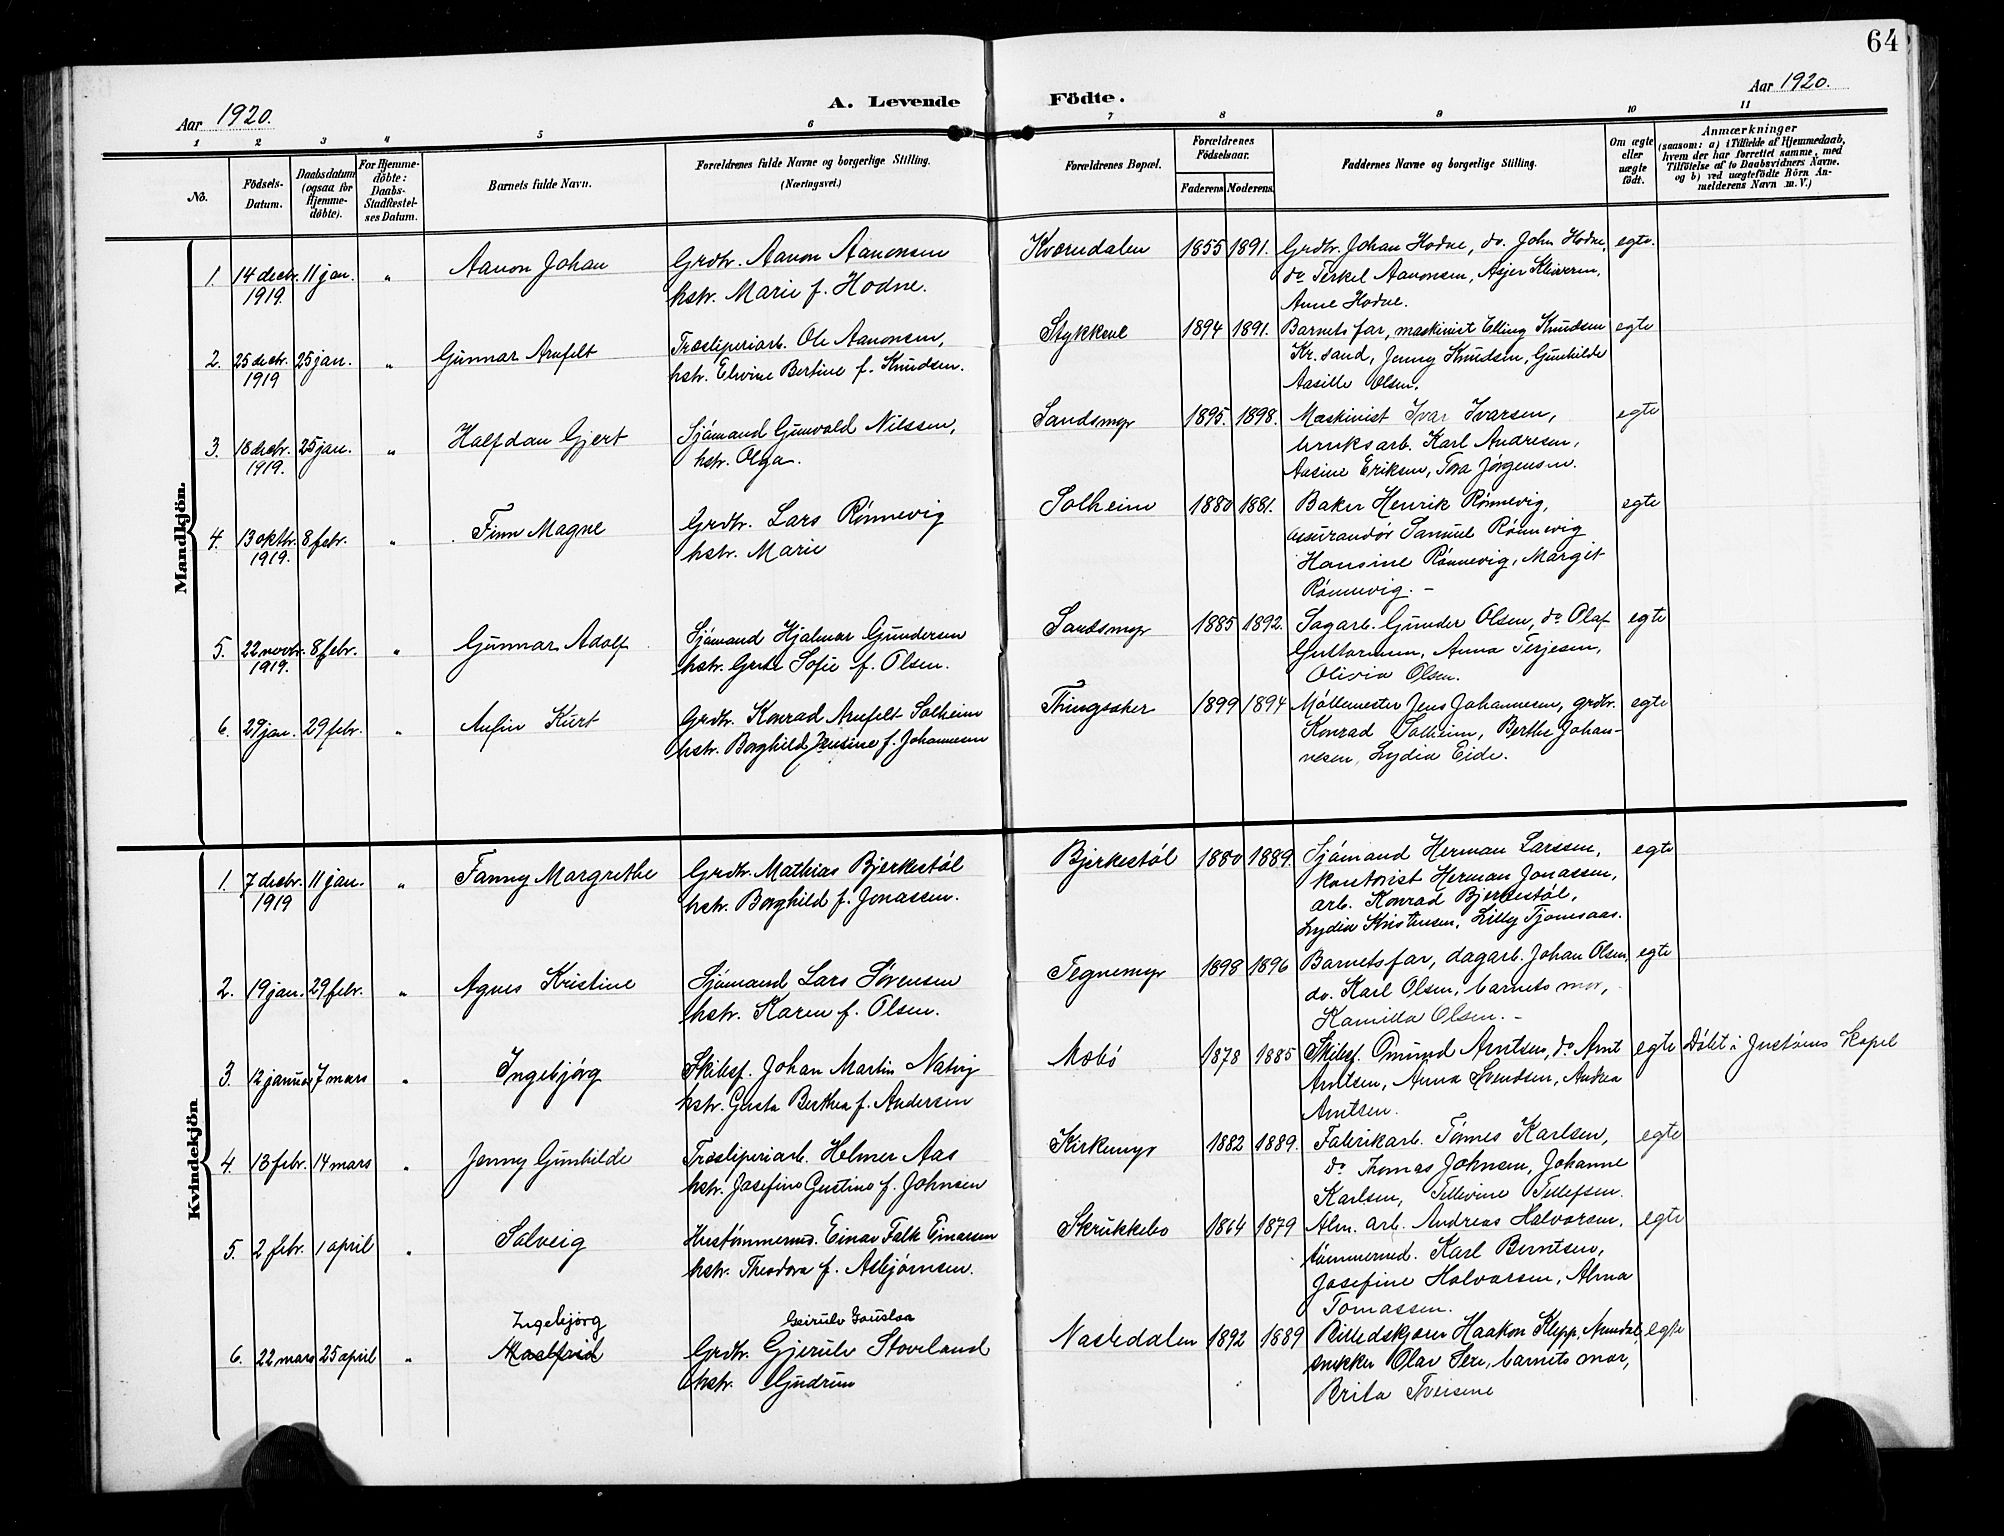 64
Aar 1920.
A. Levende
Födte.
Aar 1920.
1 2 3 4 5 6 7 8 9 10 11
No.
Födsels-Datum.
Daabsdatum (ogsaa for Hjemme-döbte).
For Hjemme-döbte: Daabs-Stadfæstel-ses Datum.
Barnets fulde Navn.
Forældrenes fulde Navne og borgerlige Stilling.
(Næringsvei.)
Forældrenes Bopæl.
Forældrenes Födselsaar.
Faderens. Moderens.
Faddernes Navne og borgerlige Stilling.
Om ægte eller uægte födt.
Anmærkninger
(saasom: a) i Tilfælde af Hjemmedaab,
hvem der har forrettet samme, med
Tilföielse af to Daabsvidners Navne.
og b) ved uægtefödte Börn An-
melderens Navn m. V.)
Mandkjön.
1. 14 decbr. 1919. 11 jan. " Aanon Johan
Grdbr. Aanon Aanonsen
hstr. Marie f. Hodne.
Kværndalen 1855 1891.
Grdbr. Johan Hodne, do. John Hodne,
do Terkel Aanonsen, Asjer Kleiveren,
Anne Hodne.
egte.
2. 25 decbr. 1919 25 jan. " Gunnar Arnfelt
Træsliperiarb. Ole Aanonsen,
hstr. Elvine Bertine f. Knudsen.
Stykkene 1894 1891.
Barnets far, maskinist Elling Knudsen
Kr.sand, Jenny Knudsen, Gunhilde
Aasille Olsen.
egte
3. 18 decbr. 1919. 25 jan. " Halfdan Gjert
Sjömand Gunvald Nilssen,
hstr. Olga.
Sandsmyr 1895. 1898.
Maskinist Ivar Ivarsen,
bruksarb. Karl Andresen,
Aasine Eriksen, Tora Jørgensen.
egte
4. 13 oktbr. 1919. 8 febr. " Finn Magne
Grdbr. Lars Rønnevig
hstr. Marie
Solheim 1880 1881.
Baker Henrik Rønnevig,
assurandør Samuel Rønnevig
Hansine Rønnevig, Margit
Rønnevig. -
egte
5. 22 novbr. 1919. 8 febr. " Gunnar Adolf
Sjömand Hjalmar Gundersen
hstr. Grete Sofie f. Olsen.
Sandsmyr 1885 1892.
Sagarb. Gunder Olsen, do Olaf
Guttormsen, Anna Terjesen,
Olivia Olsen.
egte
6. 29 jan. 29 febr. " Anfin Kurt
Grdbr. Konrad Arnfelt Solheim
hstr. Borghild Jensine f. Johannesen
Thingsaker 1899 1894
Møllemester Jens Johannesen, grdbr.
Konrad Solheim, Berthe Johan-
nesen, Lydia Eide.
egte
Kvindekjön.
1. 7 decbr. 1919 11 jan. " Fanny Margrethe
Grdbr. Mathias Bjerkestøl
hstr. Borghild f. Jonassen.
Bjerkestøl 1880 1889.
Sjömand Herman Larssen,
kontorist Herman Jonassen,
arb. Konrad Bjerkestøl,
Lydia Kristensen, Lilly Tjomsaas.
egte
2. 19 jan. 29 febr. " Agnes Kristine
Sjömand Lars Sørensen
hstr. Karen f. Olsen.
Tegnemyr 1898 1896
Barnets far, dagarb. Johan Olsen,
do. Karl Olsen, barnets mor,
Kamilla Olsen. -
egte
3. 12 januar 7 mars " Ingebjørg
Skibsf. Johan Martin Natvig
hstr. Gusta Berthea f. Andersen
Mæbø 1878 1885
Skibsf. Omund Arntsen, do Arnt
Arntsen, Anna Svendsen, Andrea
Arntsen.
egte Døbt i Justøens Kapel
4. 13 febr. 14 mars " Jenny Gunhilde
Træsliperiarb. Helmer Aas
hstr. Josefine Gustine f. Johnsen
Kirkemyr 1882 1889.
Fabrikarb. Tønnes Karlsen,
do Thomas Johnsen, Johanne
Karlsen, Tellevine Tellefsen.
egte
5. 2 febr. 1 april " Solveig
Hustømmermd. Einar Falk Einarsen
hstr. Theodora f. Asbjørnsen.
Skrukkebo 1864 1879
Alm. arb. Andreas Halvorsen,
tømmermd. Karl Berntsen,
Josefine Halvorsen, Alma
Tomassen.
egte
6. 22 mars 25 april " Ingebjørg
Maalfrid
Geirulv
Grdbr. Gjerulv Stoveland
hstr. Gjudrun
NaStedalen 1892 1889
Billedskjærer Haakon Klepp, Arendal,
snikker Olav Sere, barnets mor,
Brita Tveisene
egte